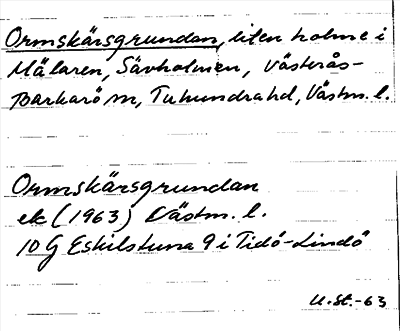 Ormskärsgrundan, liten holme i
Mälaren, Sävholmen, Västerås-
Barkarö sn, Tuhundra hd, Västm. l.
Ormskärsgrundan
ek (1963) Västm. l.
10 G Eskilstuna 9 i Tidö-Lindö
U.St.-63